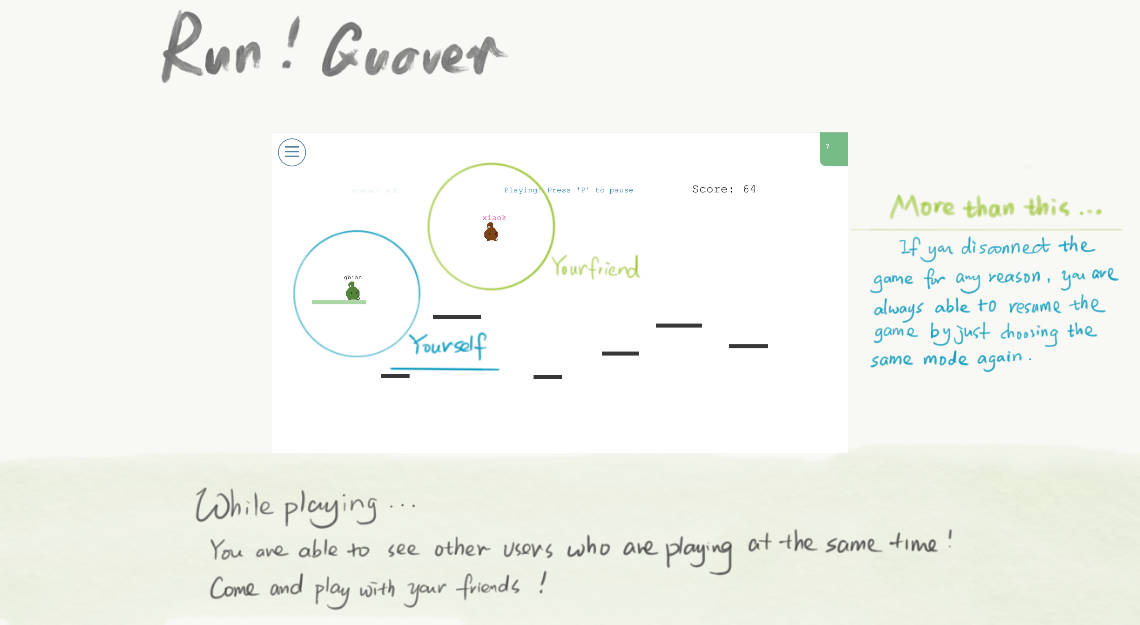 Run! Guaver
?
Playing! Press 'P' to pause
Score: 64
xiaok
Your friend
Yourself
More than this...
If you disconnect the
game for any reason, you are
always able to resume the
game by just choosing the
same mode again.
While playing...
You are able to see other users who are playing at the same time!
Come and play with your friends!